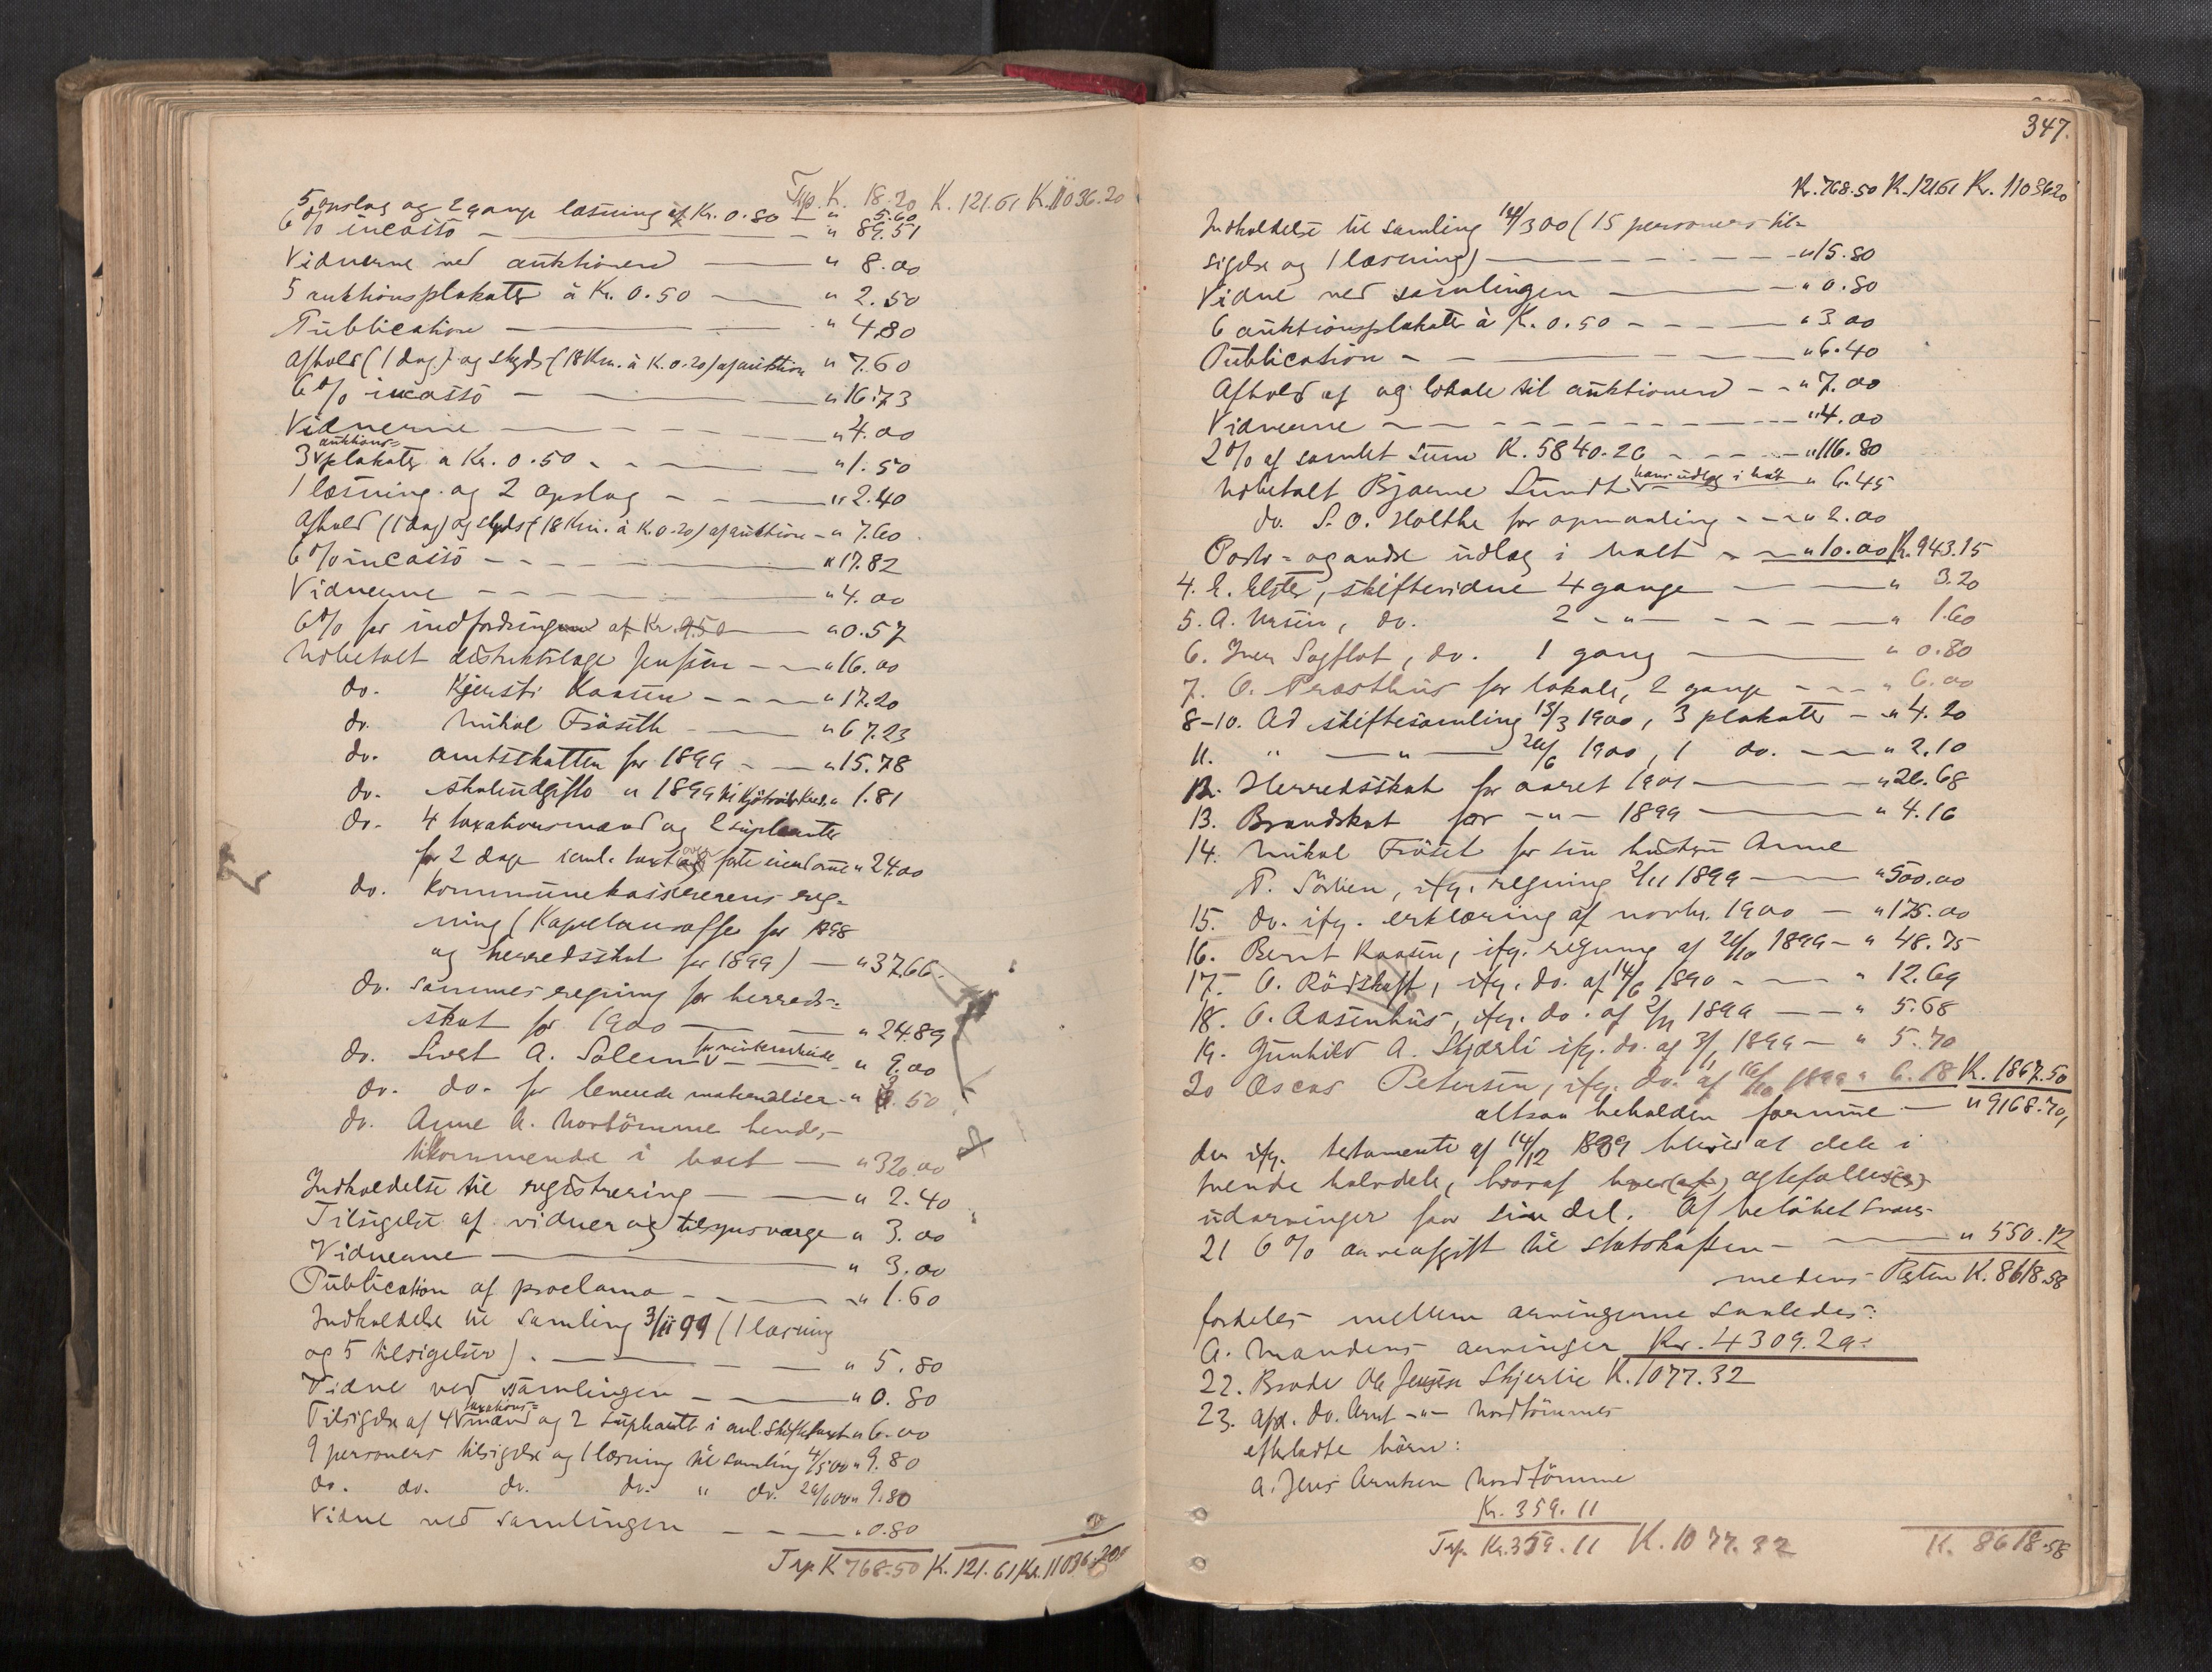 Trp. K. 18.20 K. 121.61 K. 11036.20
5 opslag og 2 gange læsning af Kr. 0.80 - " 5.60
6 % incasso - " 89.51
Vidnerne ved auktionen - " 8.00
5 auktionsplakater à Kr. 0.50 - " 2.50
Publication - " 4.80
Afhold (1 dag) og skyds (18 Km. à K. 0.20) af auktion " 7.60
6 % incasso - " 16.73
Vidnerne - " 4.00
3 auktions= plakater a Kr. 0.50 - " 1.50
1 læsning og 2 opslag - " 2.40
Afhold (1 dag) og skyds (18 Km. à K. 0.20) af auktion - " 7.60
6 % incasso - " 17.82
Vidnerne - " 4.00
6 % for indfordringen af Kr. 9.50 " 0.57
Udbetalt distriktslæge Jenssen - " 16.00
do. Kjersti Kaasen - " 17.20
do. Mikal Fröseth - " 67.23
do. amtsskatten for 1899 - " 15.78
do. skoleudgifts " 1899 " 1.81
do. 4 taxationsmænd og 2 supleanter
for 2 dage " 24.00
do. Kommunekassererens reg=
ning (Kapelanoffer for 1898
og herredsskat for 1899) - " 37.66
do. sammes regning for herreds=
skat for 1900 - " 24.89
do. Sivert A. Solem - " 9.00
do. do. for leverede materialier - " .50
do. Anne A. Nordtömme hendes
tilkommende i boet - " 320.00
Indkaldelse til registrering - " 2.40
Tilsigelse af vidner og tilsynsværge " 3.00
Vidnerne - " 3.00
Publication af proclama - " 1.60
Indkaldelse til samling 3/11 99 (1 læsning
og 5 tilsigelser). - " 5.80
Vidne ved samlingen - " 0.80
Tilsigelse af 4 taxations= mænd og 2 supleanter i anl. " 6.00
9 personers tilsigelse og 1 læsning til samling 4/5 00 " 9.80
do. do. do. do. " do. 29/6 00 " 9.80
Vidne ved samlingen - " 0.80
Trp. K 768.50 K. 121.61 Kr. 11036.20
347.
Kr. 768.50 K. 121.61 Kr. 11036.20
Indkaldelse til samling (15 personers til=
sigelse og 1 læsning) - " 15.80
Vidne ved samlingen - " 0.80
6 auktionsplakater à K. 0.50 - " 3.00
Publication - " 6.40
Afhold af og lokale til auktionen - " 7.00
Vidnerne - " 4.00
2 % af samlet sum K. 5840.20 - " 116.80
Udbetalt Bjarne Sundt hans udlæg i boet " 6.45
do. S. O. Holthe for opmaaling - " 2.00
Porto= og andre udlæg i boet - " 10.00 K. 943.15
4. E. Elster, skiftevidne 4 gange - " 3.20
5. A. Ursin, do. 2 - " - " 1.60
6. Iver Sagflot, do. 1 gang - " 0.80
7. O. Præsthus for lokale, 2 gange - " 6.00
8-10. Ad skiftesamling 13/3 1900, 3 plakater - " 4.20
11. " - " - 29/6 1900, 1 do. - " 2.10
12. Herredsskat for aaret 1901 - " 26.68
13. Brandskat for - " - 1899 - " 4.16
14. Mikal Fröset for sin hustru Anne
P. Sörlien, ifg. regning 2/11 1899 - " 500.00
15. do. ifg. erklæring af novbr. 1900 - " 175.00
16. Bernt Kaasen, ifg. regning af 1899 - " 48.75
17. O. Rödskaft, ifg. do. af 14/6 1890 - " 12.69
18. O. Aasenhus, ifg. do. af 2/11 1899 - " 5.68
19. Gunhild A. Skjærli ifg. do. af 3/11 1899 - " 5.70
20 Oscar Petersen, ifg. do. af 16/10 1899 " 6.18 K. 1867.50
altsaa beholden formue - " 9168.70,
der ifg. testamente af 14/12 1889 bliver at dele i
tvende halvdele, hvoraf hver(af) ægtefælles(s)
udarvinger faar sin del. Af beløbet svares
21 6 % arveafgift til statskassen - " 550.12
medens Resten K. 8618.58
fordeles mellem arvingerne saaledes:
A. Mandens arvinger Kr. 4309.29:
22. Broder Ole Jensen Skjerlie K. 1077.32
23. Afd. do. Arnt - " - Nordtömmes
efterladte börn:
a. Jens Arntsen Nordtömme
Kr. 359.11
Trp. Kr. 359.11 K. 1077.32 K. 8618.58